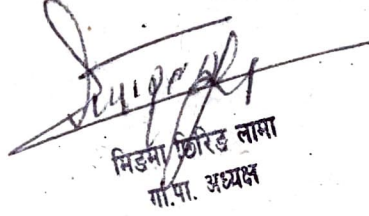 मिङमा छिरिङ लामा
गाँ.पा. अध्यक्ष